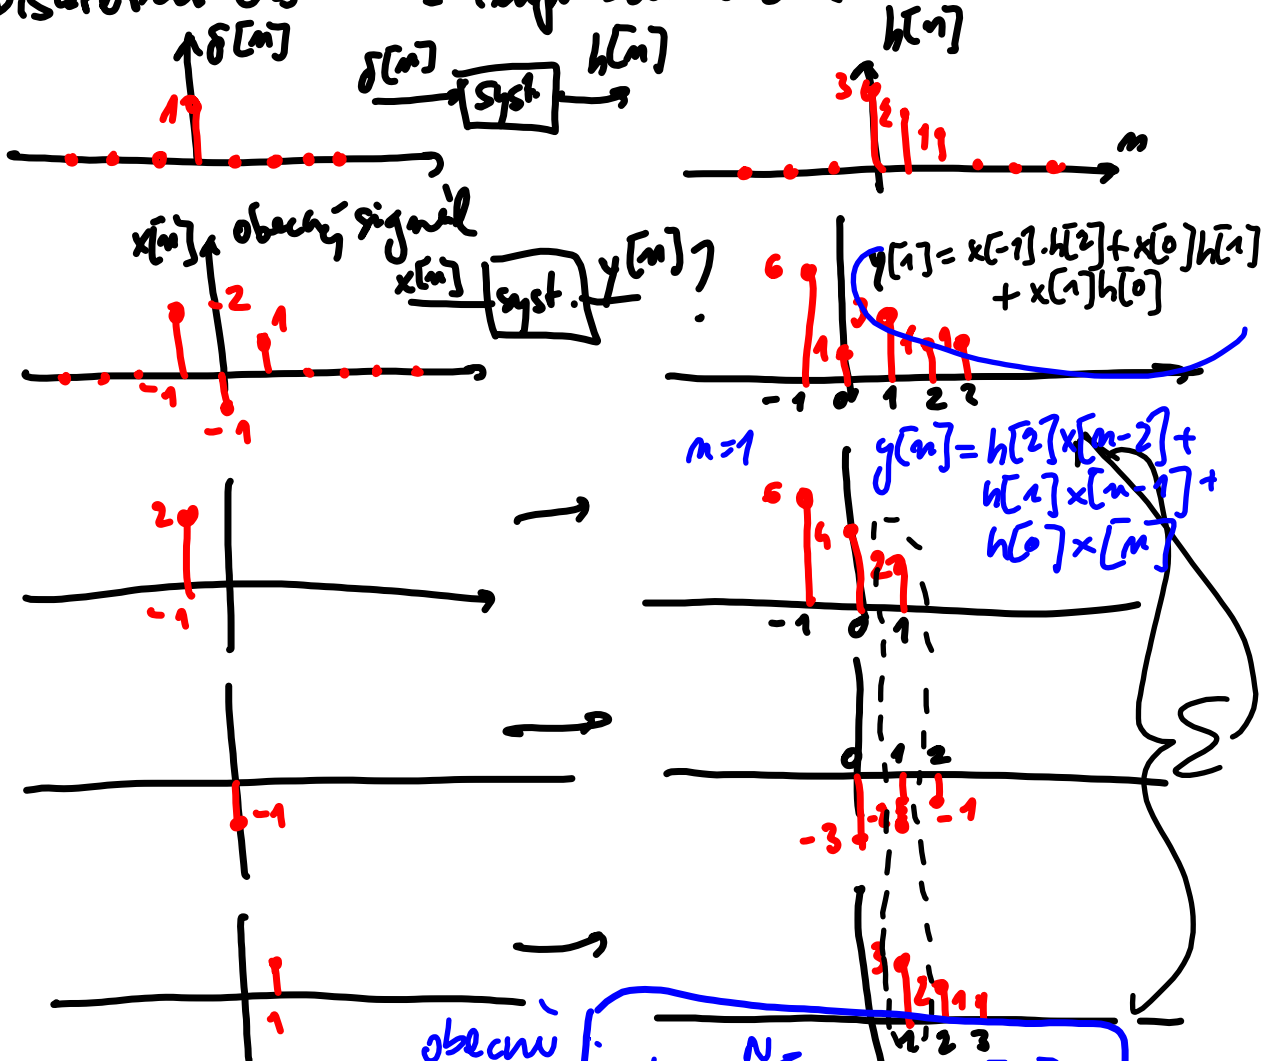 δ[n]
δ[n]
h[n]
syst
h[n]
1
3
2
1
n
x[n]
obecný signál
x[n]
syst.
y[n] ?
2
1
-1
-1
6
1
3
1
1
-1 0 1 2 3
y[1] = x[-1].h[2] + x[0]h[1]
+ x[1]h[0]
n=1
y[n] = h[2]x[n-2] +
h[1]x[n-1] +
h[0]x[n]
2
-1
6
4
2
1
-1 0 1
-1
0 1 2
-3
-2
-1
Σ
1
3
2
1
1 2 3